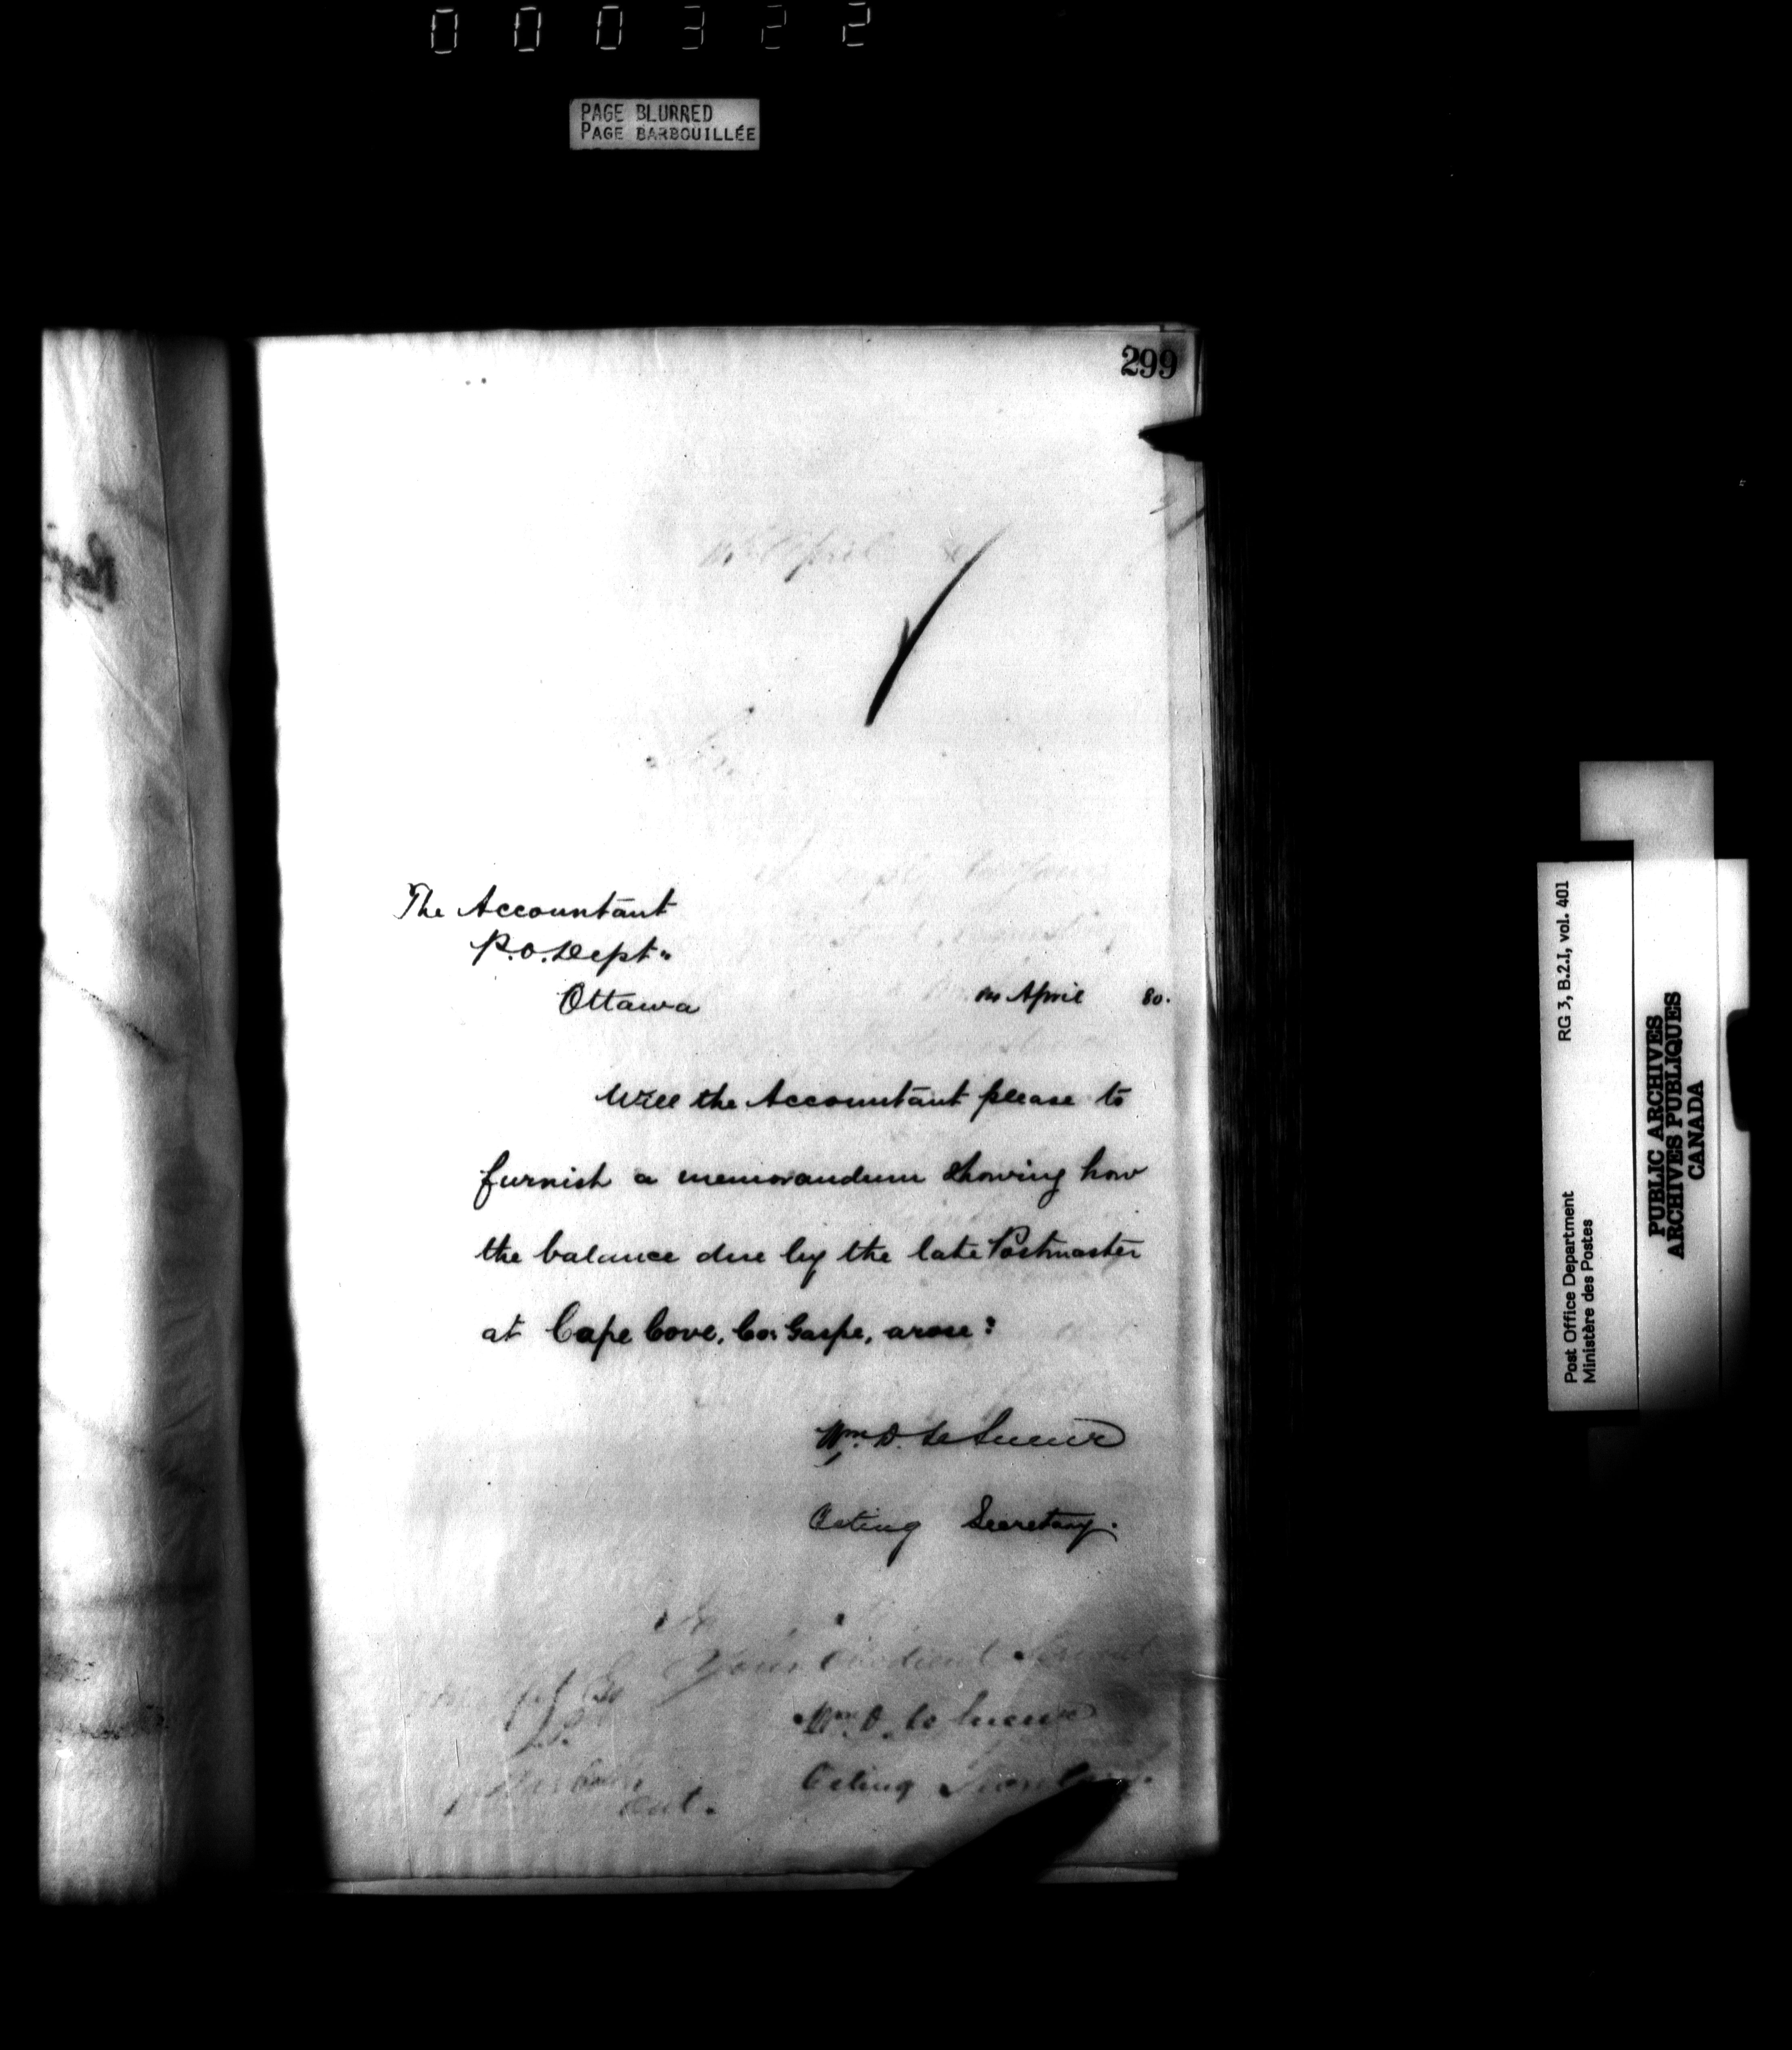 000322
PAGE BLURRED
PAGE BARBOUILLÉE
299
The Accountant
P.O. Dept.
Ottawa
April 80.
Will the Accountant please to
furnish a memorandum showing how
the balance due by the late Postmaster
at Cape Cove, Co. Gaspe, arose?
Wm. D. LeSueur
Acting Secretary.
Your Obedient Servant
Wm. D. Le Sueur
Acting Secretary.
Ont.
Post Office Department RG 3, B.2.I, vol. 401
Ministère des Postes
PUBLIC ARCHIVES
ARCHIVES PUBLIQUES
CANADA